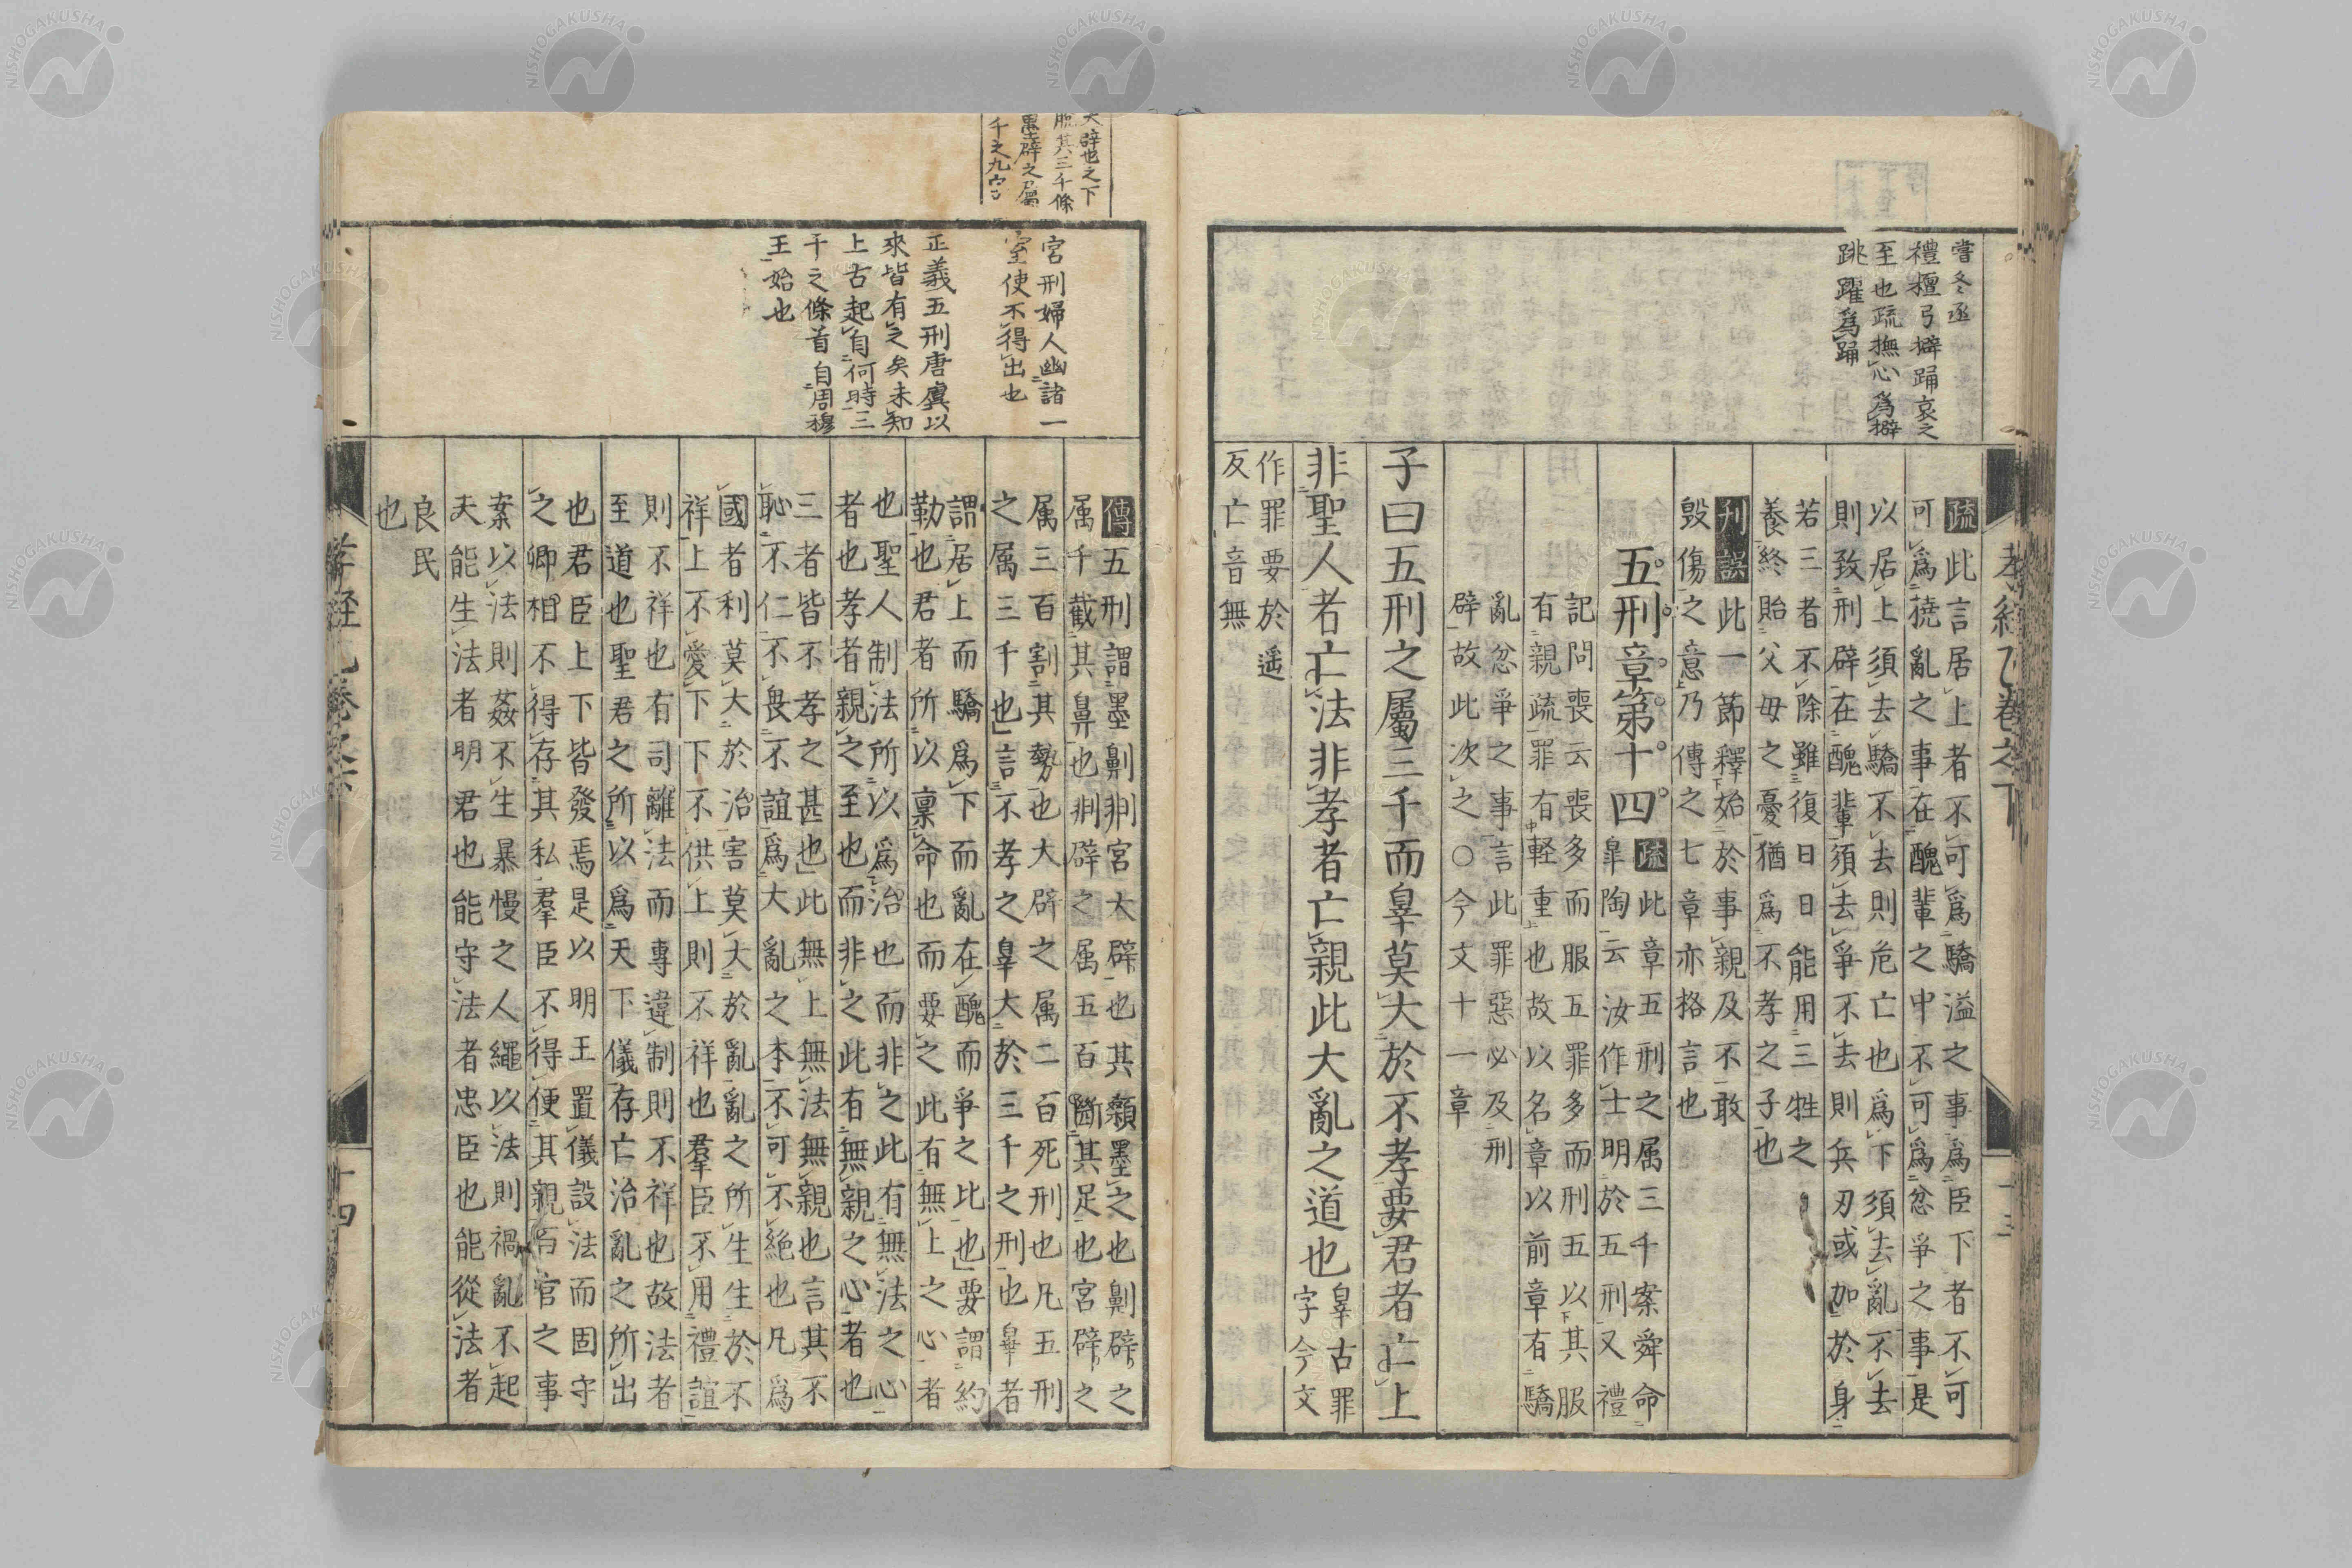 嘗冬烝
禮檀弓擗踊哀之
至也疏撫心爲擗
跳躍爲踊
疏此言居上者不可爲驕溢之事爲臣下者不可
可爲撓亂之事在醜輩之中不可爲忿爭之事是
以居上須去驕不去則危亡也爲下須去亂不去
則致刑辟在醜輩須去爭不去則兵刃或加於身
若三者不除雖復日日能用三牲之
養終貽父母之憂猶爲不孝之子也
刋誤此一節釋始於事親及不敢
毀傷之意乃傳之七章亦格言也
五刑章第十四
疏此章五刑之属三千案舜命
皐陶云汝作士明於五刑又禮
記問喪云喪多而服五罪多而刑五以其服
有親疏罪有軽重也故以名章以前章有驕
亂忿爭之事言此罪惡必及刑
辟故此次之○今文十一章
子曰五刑之屬三千而辠莫大於不孝要君者亡上
非聖人者亡法非孝者亡親此大亂之道也
辠古罪
字今文
作罪要於遥
反亡音無
大辟也之下
脱其三千條
千之九字
宮刑婦人幽諸一
室使不得出也
正義五刑唐虞以
來皆有之矣未知
上古起自何時三
千之條首自周穆
王始也
傳五刑謂墨劓剕宮大辟也其顙墨之也劓辟之
属千截其鼻也剕辟之属五百斷其足也宮辟之
属三百割其勢也大辟之属二百死刑也凡五刑
之属三千也言不孝之辠大於三千之刑也辠者
謂居上而驕爲下而亂在醜而爭之比也要謂約
勒也君者所以稟命也而要之此有無上之心者
也聖人制法所以爲治也而非之此有無法之心
者也孝者親之至也而非之此有無親之心者也
三者皆不孝之甚也此無上無法無親也言其不
恥不仁不畏不誼爲大亂之本不可不絶也凡爲
國者利莫大於治害莫大於亂亂之所生生於不
祥上不愛下下不供上則不祥也羣臣不用禮誼
則不祥也有司離法而專違制則不祥也故法者
至道也聖君之所以爲天下儀存亡治亂之所出
也君臣上下皆發焉是以明王置儀設法而固守
之卿相不得存其私羣臣不得便其親百官之事
案以法則姦不生暴慢之人繩以法則禍亂不起
夭能生法者明君也能守法者忠臣也能從法者
良民
也
十四
NISHOGAKUSHA